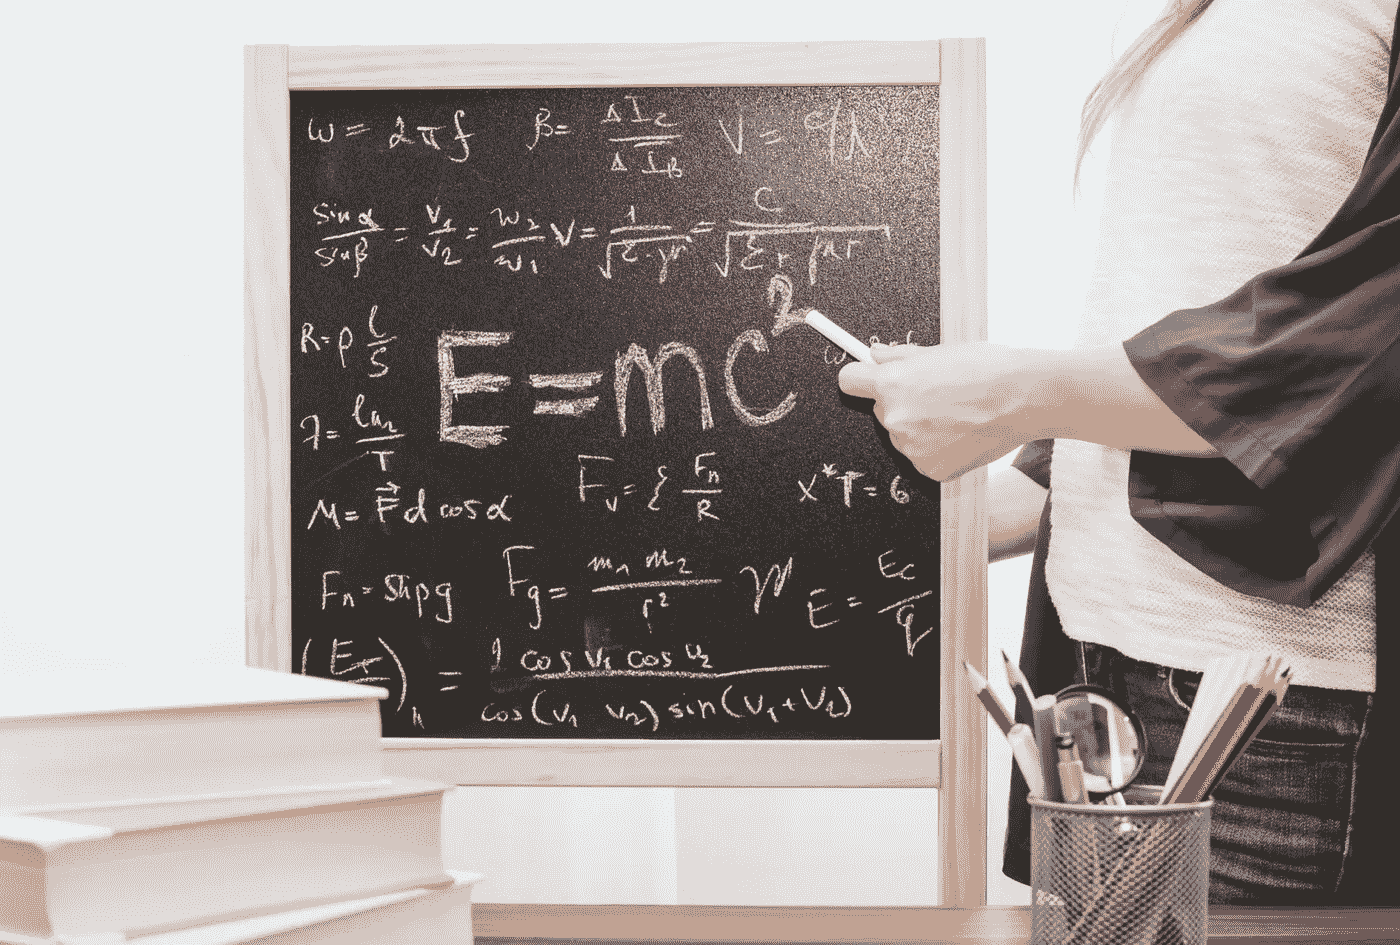 ω = 2πf β = ΔI₂/ΔI_B V = c/λ
sin α/sin β = v₁/v₂ = w₂/w₁ V = 1/√(Ɛ·μ) = C/√(Ɛr μr)
R = ρ l/S
E = mc²
λ = ln₂/T
F_v = ξ F_n/R x*T = 6
M = F⃗ d cos α
F_n = Shρg F_g = m₁ m₂/r² E = E_c/q
= 2 cos v₁ cos v₂/cos(v₁ v₂) sin(v₁+v₂)